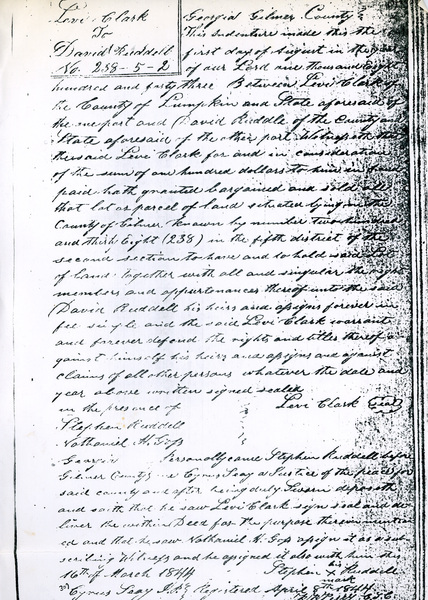 Levi Clark
To
David Ruddell
No. 238-5-2
Georgia Gilmer County
This Indenture made this the
first day of August in the year
of our Lord one thousand Eight
hundred and forty three Between Levi Clark of
the County of Lumpkin and State aforesaid of
the one part and David Ruddle of the County and
State aforesaid of the other part Witnesseth that
the said Levi Clark for and in consideration
of the sum of one hundred dollars to him in hand
paid hath granted bargained and sold all
that lot or parcel of land situated lying in the
County of Gilmer known by number two hundred
and thirty Eight (238) in the fifth district of the
second section to have and to hold said Lot
of land together with all and singular the rights
members and appurtenances thereof unto the said
David Ruddell his heirs and assigns forever in
fee simple and the said Levi Clark warrant
and forever defend the rights and titles thereof a
gainst himself his heirs and assigns and against
claims of all other persons whatever the date and
year above written signed sealed
in the presence of Levi Clark Seal
Stephen Ruddell
Nathaniel H. Goss
Georgia Personally came Stephen Ruddell before
Gilmer County me Cyrus Seay a Justice of the peace for
said county and after being duly Sworn deposeth
and saith that he saw Levi Clark sign seal and de
liver the within Deed for the purpose therein mention
ed and that he saw Nathaniel H. Goss assign it as a sub
scribing Witness and he assigned it also with him this
16th of March 1844 Stephen his X mark Ruddell
Cyrus Seay J.P. Registered April 8th 1844